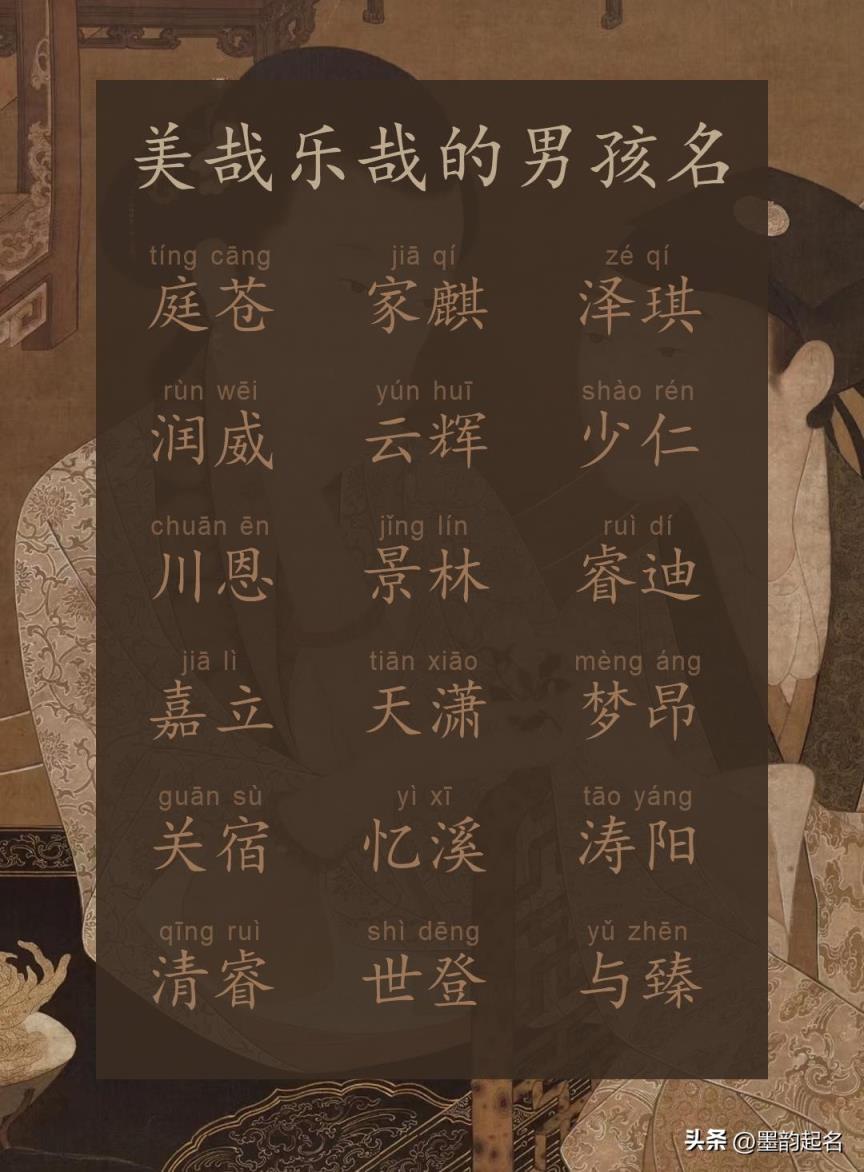 美哉乐哉的男孩名
tíng cāng jiā qí zé qí
庭苍 家麒 泽琪
rùn wēi yún huī shào rén
润威 云辉 少仁
chuān ēn jǐng lín ruì dí
川恩 景林 睿迪
jiā lì tiān xiāo mèng áng
嘉立 天潇 梦昂
guān sù yì xī tāo yáng
关宿 忆溪 涛阳
qīng ruì shì dēng yǔ zhēn
清睿 世登 与臻
头条 @墨韵起名